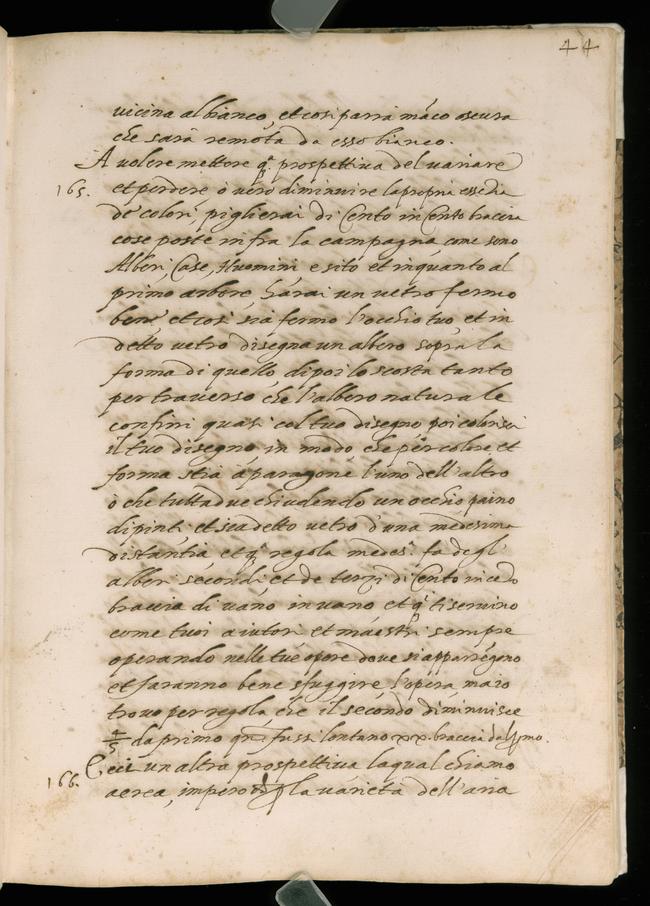 44
vicina al bianco, et cosi parrà māco oscura
che sarà remota da esso bianco.
A volere mettere q̄ prospettiva del variare
165. et perdere o vero diminuire la propria essētia
de' colori, piglierai di Cento in Cento braccia
cose poste infra la campagna come sono
Alberi, Case, Huomini e sito et in quanto al
primo arbore, harai un vetro fermo
bene et cosi sia fermo l'occhio tuo, et in
detto vetro disegna un albero sopra la
forma di quello, dipoi lo scosta tanto
per traverso, che l'albero naturale
confini quasi col tuo disegno poi colorisci
il tuo disegno in modo che per colore et
forma stia a paragone l'uno dell'altro
o che tutta due chiudendo un occhio paino
dipinti et sia detto vetro d'una medesima
distantia, et q̄ regola medesi. fa degl'
alberi secondi et de terzi di Cento in cēto
braccia di vano in vano et q̄ ti servino
come tuoi aiutori et maestri sempre
operando nelle tue opere dove si apparregono
et faranno bene sfuggire l'opera, ma io
trovo per regola che il secondo diminuisce
4/5 da primo qn̄ fussi lontano xx. braccia dal p̄mo.
166. Ecci un altra prospettiva la qual chiamo
aerea, impero che p la varietà dell'aria